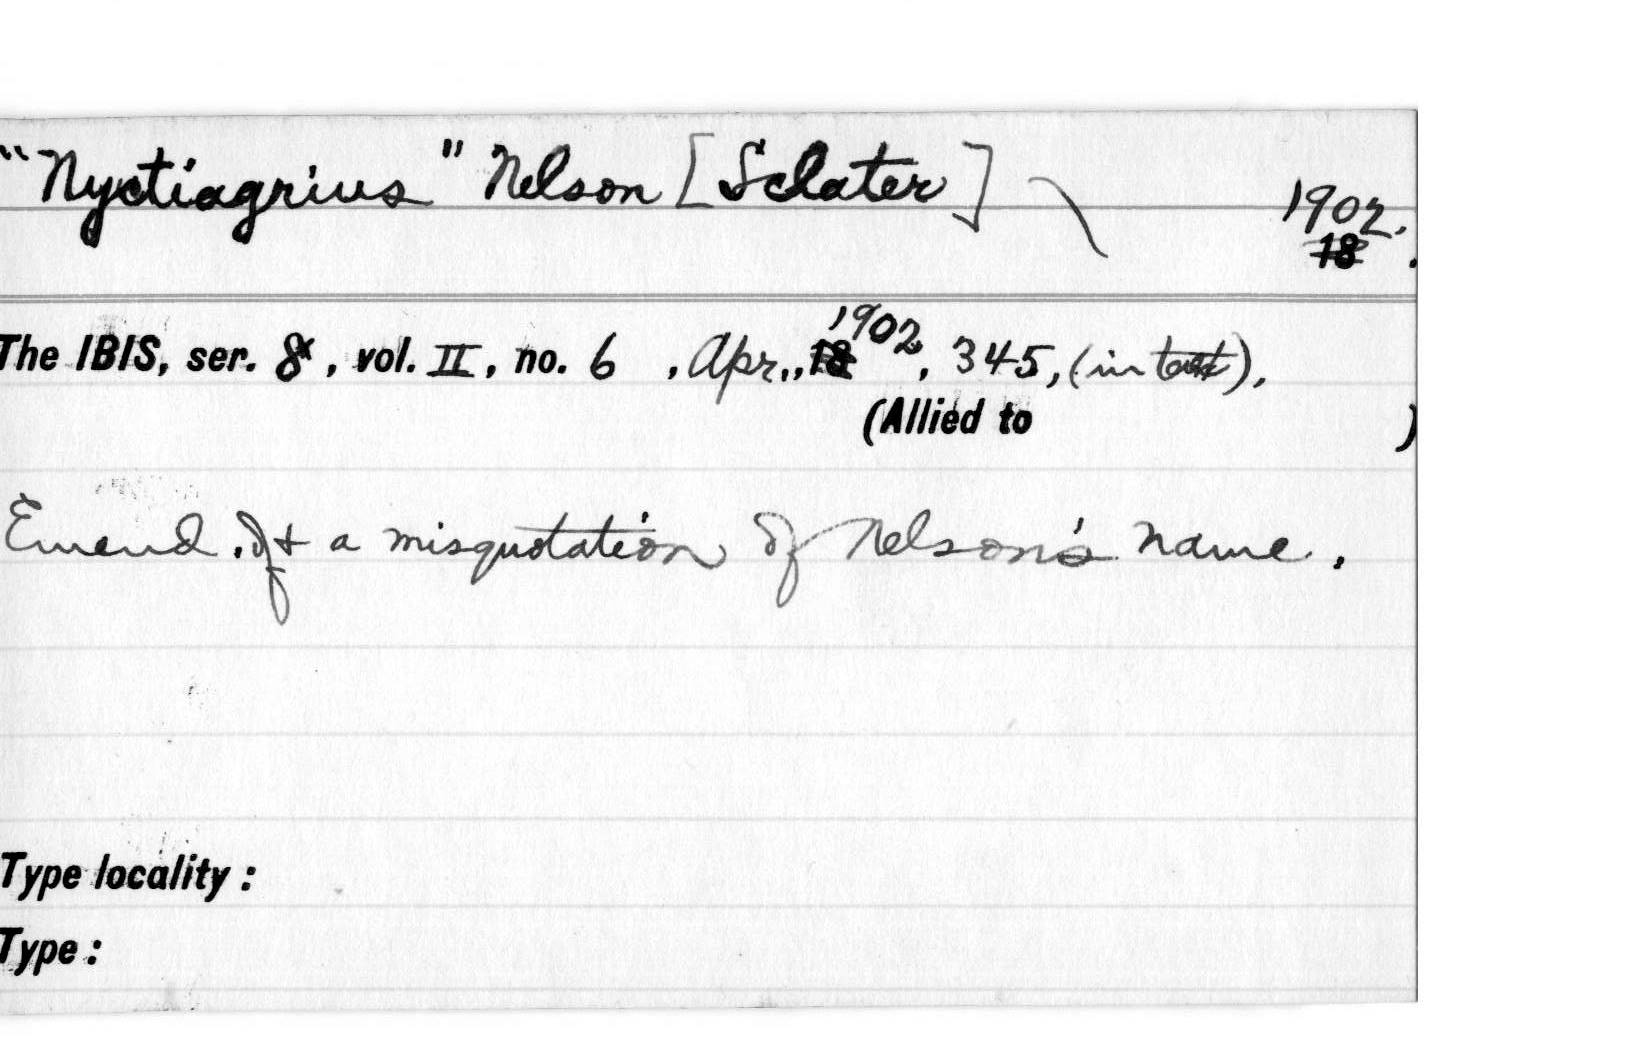 "Nyctiagrius" Nelson [Sclater]
1902.
18 .
The IBIS, ser. 8, vol. II, no. 6 , Apr., 1902, 345, (in text),
(Allied to )
Emend. of & a misquotation of Nelson's name.
Type locality :
Type :